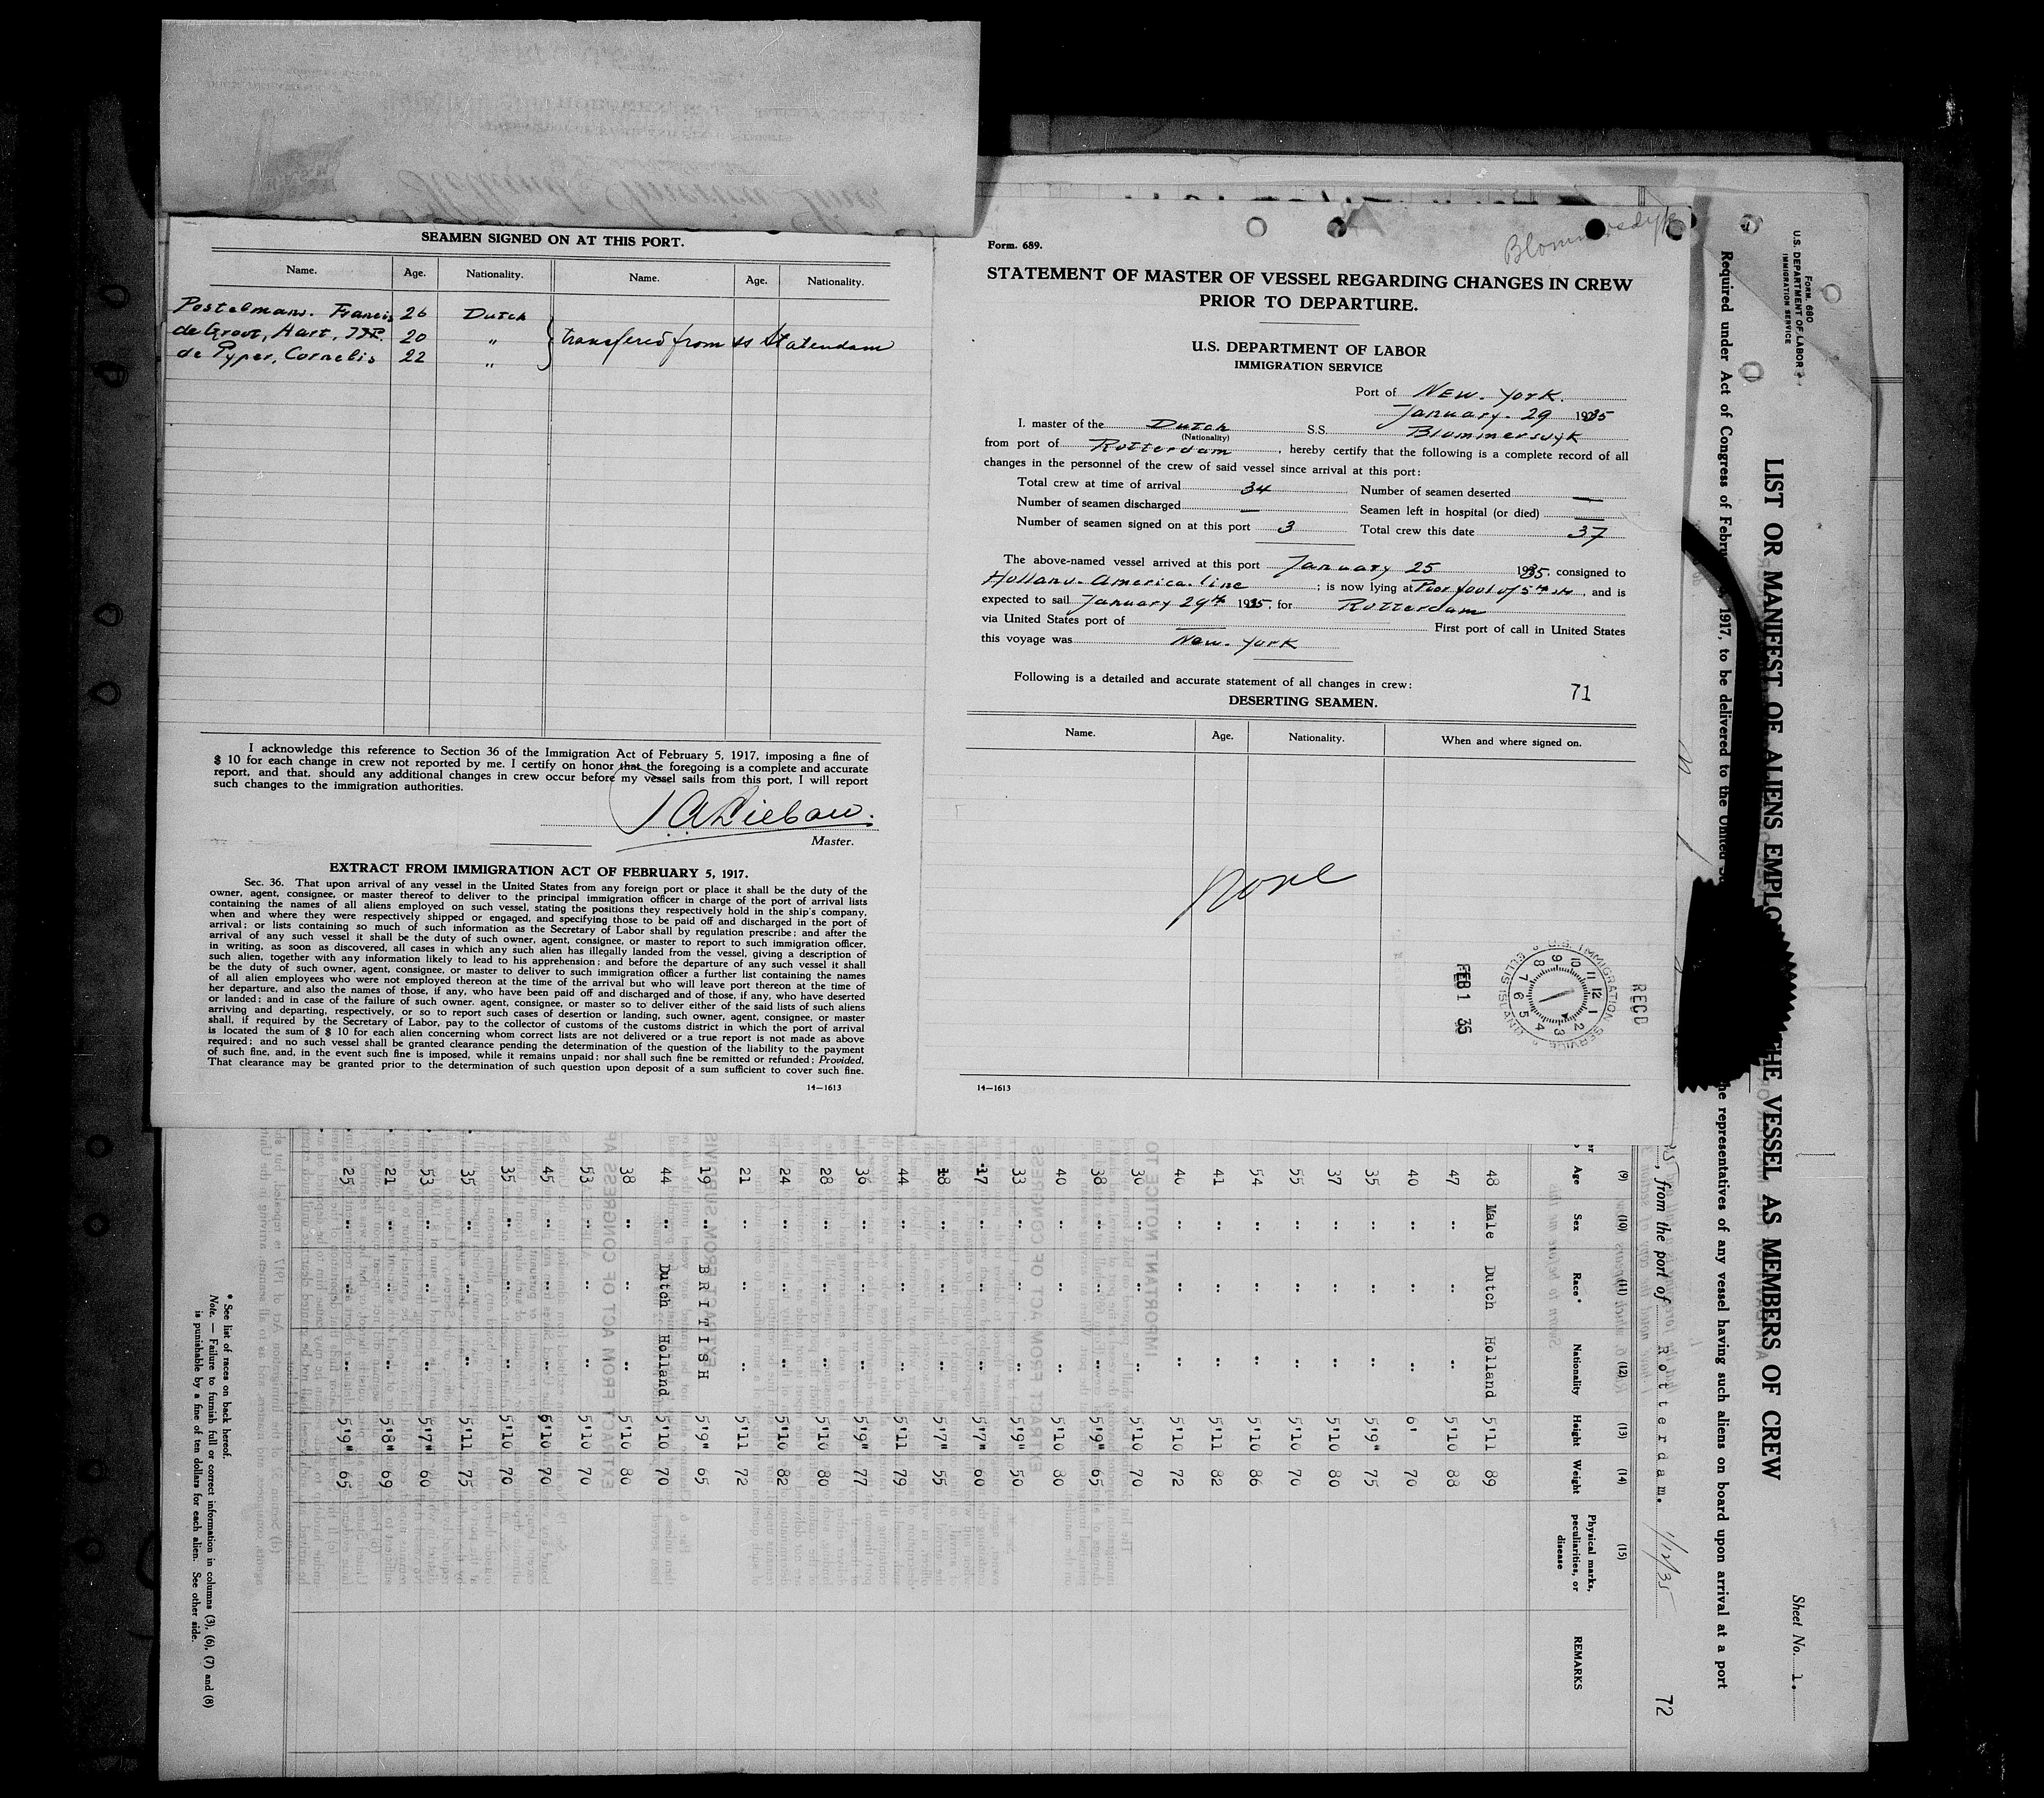 SEAMEN SIGNED ON AT THIS PORT.
Name. Age. Nationality. Name. Age. Nationality.
Postelmans. Francis 26 Dutch
de Groot, Hart. 20 "
de Pyper, Cornelis 22 "
transfered from ss Statendam
I acknowledge this reference to Section 36 of the Immigration Act of February 5, 1917, imposing a fine of
$ 10 for each change in crew not reported by me. I certify on honor that the foregoing is a complete and accurate
report, and that, should any additional changes in crew occur before my vessel sails from this port, I will report
such changes to the immigration authorities.
Master.
EXTRACT FROM IMMIGRATION ACT OF FEBRUARY 5, 1917.
Sec. 36. That upon arrival of any vessel in the United States from any foreign port or place it shall be the duty of the
owner, agent, consignee, or master thereof to deliver to the principal immigration officer in charge of the port of arrival lists
containing the names of all aliens employed on such vessel, stating the positions they respectively hold in the ship's company,
when and where they were respectively shipped or engaged, and specifying those to be paid off and discharged in the port of
arrival; or lists containing so much of such information as the Secretary of Labor shall by regulation prescribe; and after the
arrival of any such vessel it shall be the duty of such owner, agent, consignee, or master to report to such immigration officer,
in writing, as soon as discovered, all cases in which any such alien has illegally landed from the vessel, giving a description of
such alien, together with any information likely to lead to his apprehension; and before the departure of any such vessel it shall
be the duty of such owner, agent, consignee, or master to deliver to such immigration officer a further list containing the names
of all alien employees who were not employed thereon at the time of the arrival but who will leave port thereon at the time of
her departure, and also the names of those, if any, who have been paid off and discharged and of those, if any, who have deserted
or landed; and in case of the failure of such owner. agent, consignee, or master so to deliver either of the said lists of such aliens
arriving and departing, respectively, or so to report such cases of desertion or landing, such owner, agent, consignee, or master
shall, if required by the Secretary of Labor, pay to the collector of customs of the customs district in which the port of arrival
is located the sum of $ 10 for each alien concerning whom correct lists are not delivered or a true report is not made as above
required; and no such vessel shall be granted clearance pending the determination of the question of the liability to the payment
of such fine, and, in the event such fine is imposed, while it remains unpaid; nor shall such fine be remitted or refunded; Provided,
That clearance may be granted prior to the determination of such question upon deposit of a sum sufficient to cover such fine.
14—1613
Blommersdyk
Form. 689.
STATEMENT OF MASTER OF VESSEL REGARDING CHANGES IN CREW
PRIOR TO DEPARTURE.
U.S. DEPARTMENT OF LABOR
IMMIGRATION SERVICE
Port of New. York.
January. 29 1935
I, master of the Dutch S.S. Blommersdyk
(Nationality)
from port of Rotterdam, hereby certify that the following is a complete record of all
changes in the personnel of the crew of said vessel since arrival at this port:
Total crew at time of arrival 34 Number of seamen deserted —
Number of seamen discharged — Seamen left in hospital (or died) —
Number of seamen signed on at this port 3 Total crew this date 37
The above-named vessel arrived at this port January 25 1935, consigned to
Holland-America line; is now lying at Pier foot of 5th st, and is
expected to sail January 29th 1935, for Rotterdam
via United States port of — First port of call in United States
this voyage was New. York
Following is a detailed and accurate statement of all changes in crew:
71
DESERTING SEAMEN.
Name. Age. Nationality. When and where signed on.
none
RECD
U.S. IMMIGRATION SERVICE
ELLIS ISLAND
12 1 2 3 4 5 6 7 8 9 10 11
FEB 1 35
14—1613
Form 680
U.S. DEPARTMENT OF LABOR
IMMIGRATION SERVICE
Sheet No. 1.
LIST OR MANIFEST OF ALIENS EMPLO HE VESSEL AS MEMBERS OF CREW
Required under Act of Congress of Febru 1917, to be delivered to the United he representatives of any vessel having such aliens on board upon arrival at a port
, from the port of Rotterdam. 1/12/35
72
(9) (10) (11) (12) (13) (14) (15)
Age Sex Race* Nationality Height Weight Physical marks, peculiarities, or disease REMARKS
48 Male Dutch Holland 5'11 89
47 " " " 5'10 88
40 " " " 6' 70
35 " " " 5'9" 75
37 " " " 5'10 80
55 " " " 5'10 70
54 " " " 5'10 86
41 " " " 5'11 82
40 " " " 5'10 72
30 " " " 5'10 70
38 " " " 5'9" 65
40 " " " 5'10 80
33 " " " 5'9" 50
17 " " " 5'7" 60
18 " " " 5'7" 55
44 " " " 5'11 79
36 " " " 5'9" 77
28 " " " 5'10 80
24 " " " 5'10 82
21 " " " 5'11 72
19 " BRITISH 5'9" 65
44 " Dutch Holland 5'10 70
38 " " " 5'10 80
53 " " " 5'10 70
45 " " " 5'10 70
35 " " " 5'10 70
35 " " " 5'11 75
53 " " " 5'7" 60
21 " " " 5'8" 69
25 " " " 5'9" 65
* See list of races on back hereof.
Note. — Failure to furnish full or correct information in columns (3), (6), (7) and (8)
is punishable by a fine of ten dollars for each alien. See other side.